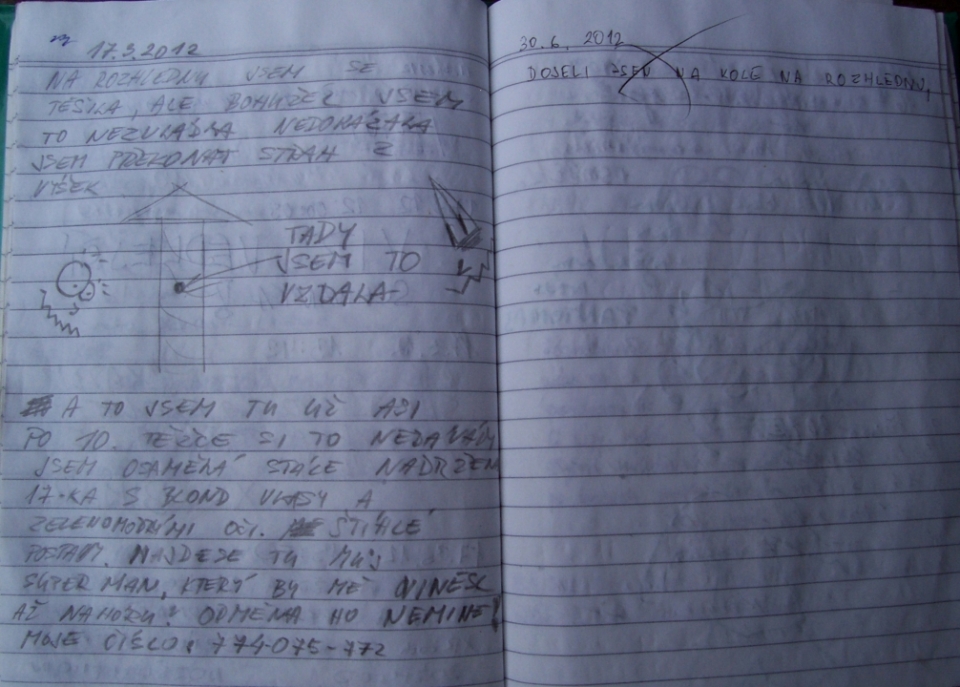 17.3.2012
NA ROZHLEDNU JSEM SE
TĚŠILA, ALE BOHUŽEL JSEM
TO NEZVLÁDLA NEDOKÁZALA
JSEM PŘEKONAT STRAH Z
VÝŠEK
TADY
JSEM TO
VZDALA
A TO JSEM TU UŽ ASI
PO 10. TĚŽCE SI TO NEZAVÁDÍM
JSEM OSAMĚLÁ STÁLE NADRŽENÁ
17-KA S BLOND VLASY A
ZELENOMODRÝMI OČI. ŠTÍHLÉ
POSTAVY. NAJDE SE TU MŮJ
SUPERMAN, KTERÝ BY MĚ VYNESL
AŽ NAHORU? ODMĚNA HO NEMINE!
MOJE ČÍSLO: 774-075-772
30.6. 2012
DOJELI JSEM NA KOLE NA ROZHLEDNU,